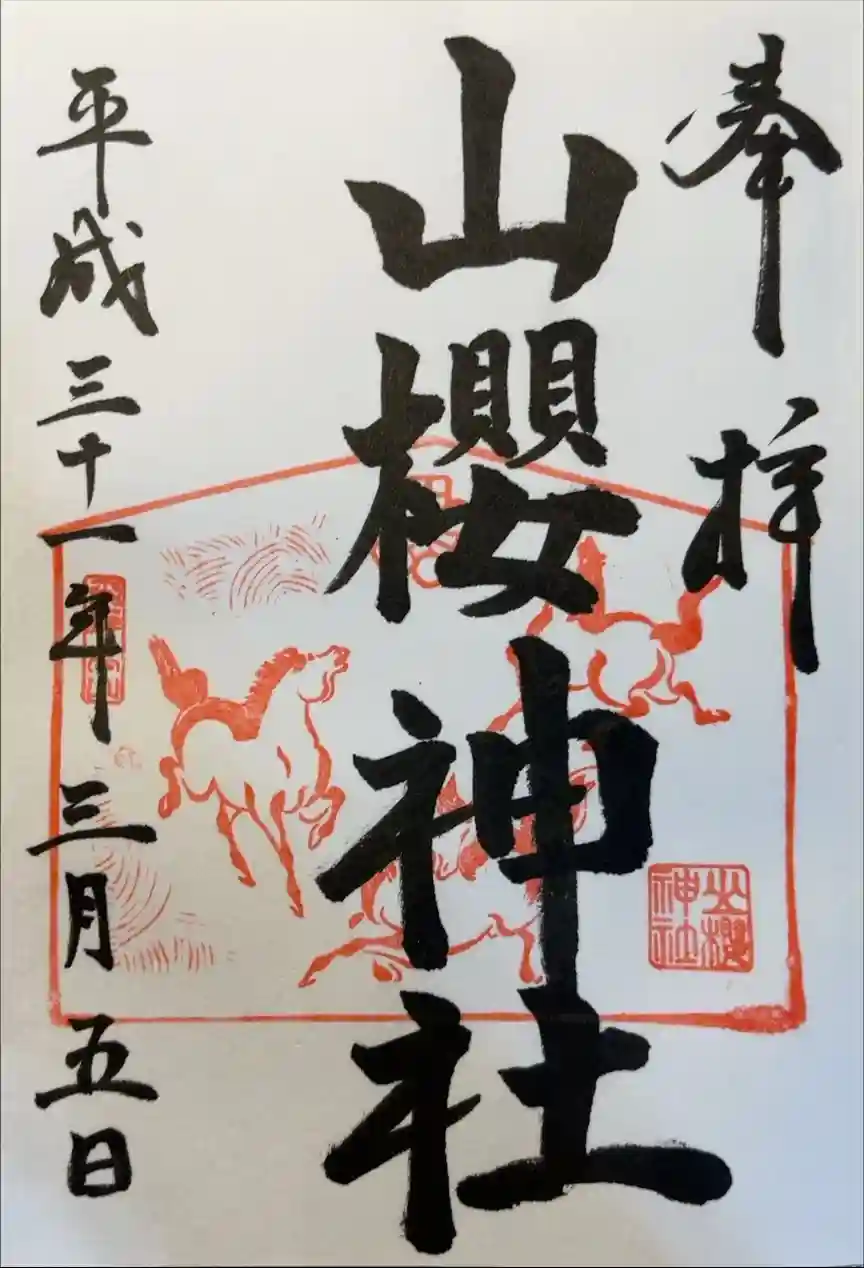 奉拝
山櫻神社
山櫻
神社
平成三十一年三月五日